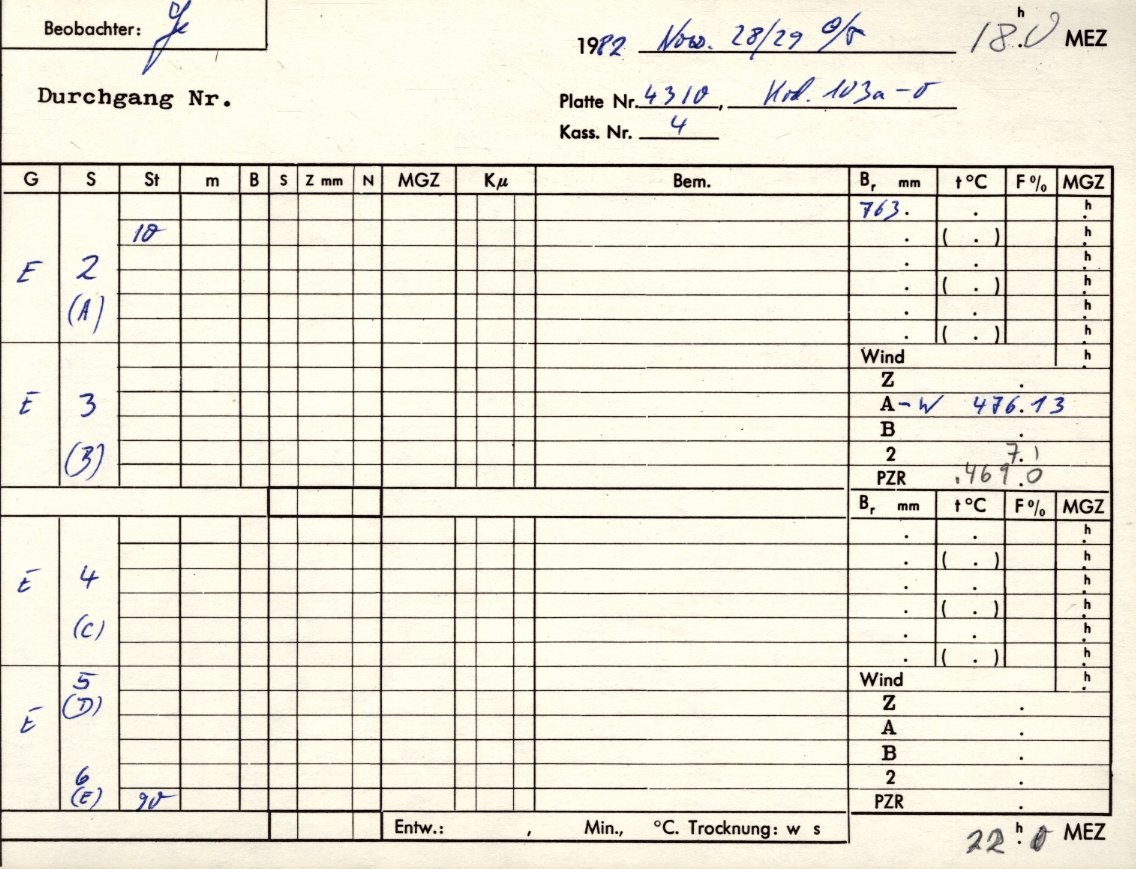 Beobachter: Je
1982 Nov. 28/29 18h.0 MEZ
Durchgang Nr.
Platte Nr. 4310, Kod. 103a-O
Kass. Nr. 4
G S St m B S Z mm N MGZ Kµ Bem. Br mm t °C F % MGZ
763. . .h
10 . ( . ) .h
E 2 . . .h
(A) . ( . ) .h
. . .h
. ( . ) .h
Wind .h
Z .
E 3 A -W 476.13
B .
(B) 2 7.1
PZR .469.0
Br mm t °C F % MGZ
. . .h
. ( . ) .h
E 4 . . .h
. ( . ) .h
(C) . . .h
. ( . ) .h
5 Wind .h
(D) Z .
E A .
B .
6 2 .
(E) 90 PZR .
Entw.: , Min., °C. Trocknung: w s
22h.0 MEZ